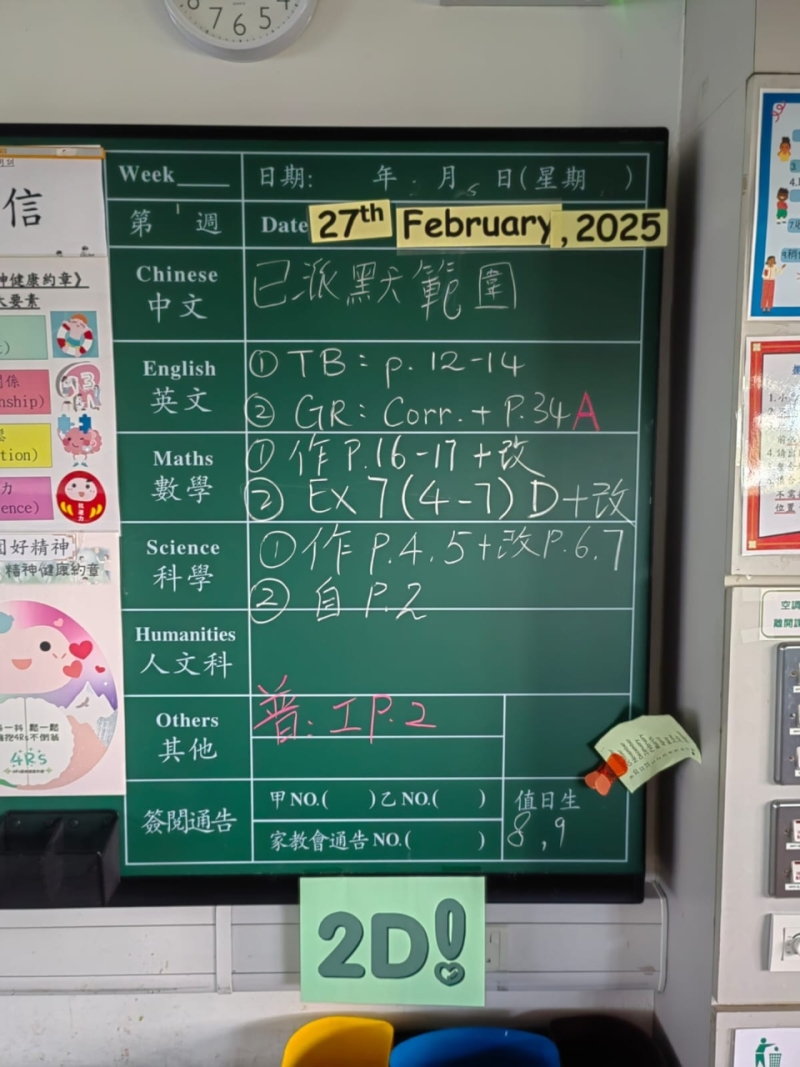 8 7 6 5 4
Week____ 日期: 年 月 日(星期 )
第 週 Date 27th February, 2025
Chinese 中文 已派默天範圍
English 英文 ① TB: p. 12-14
② GR: Corr. + P.34A
Maths 數學 ① 作 P.16-17 +改
② EX 7 (4-7) D+改
Science 科學 ① 作 P.4,5+改P.6,7
② 自 P.2
Humanities 人文科
Others 其他 普: 工 P.2
簽閱通告 甲 NO.( )乙 NO.( ) 值日生
家教會通告 NO.( ) 8,9
2D!
信
神健康約章》
大要素
關係
nship)
tion)
力
ence)
好精神
精神健康約章
4Rs
空調
離開課